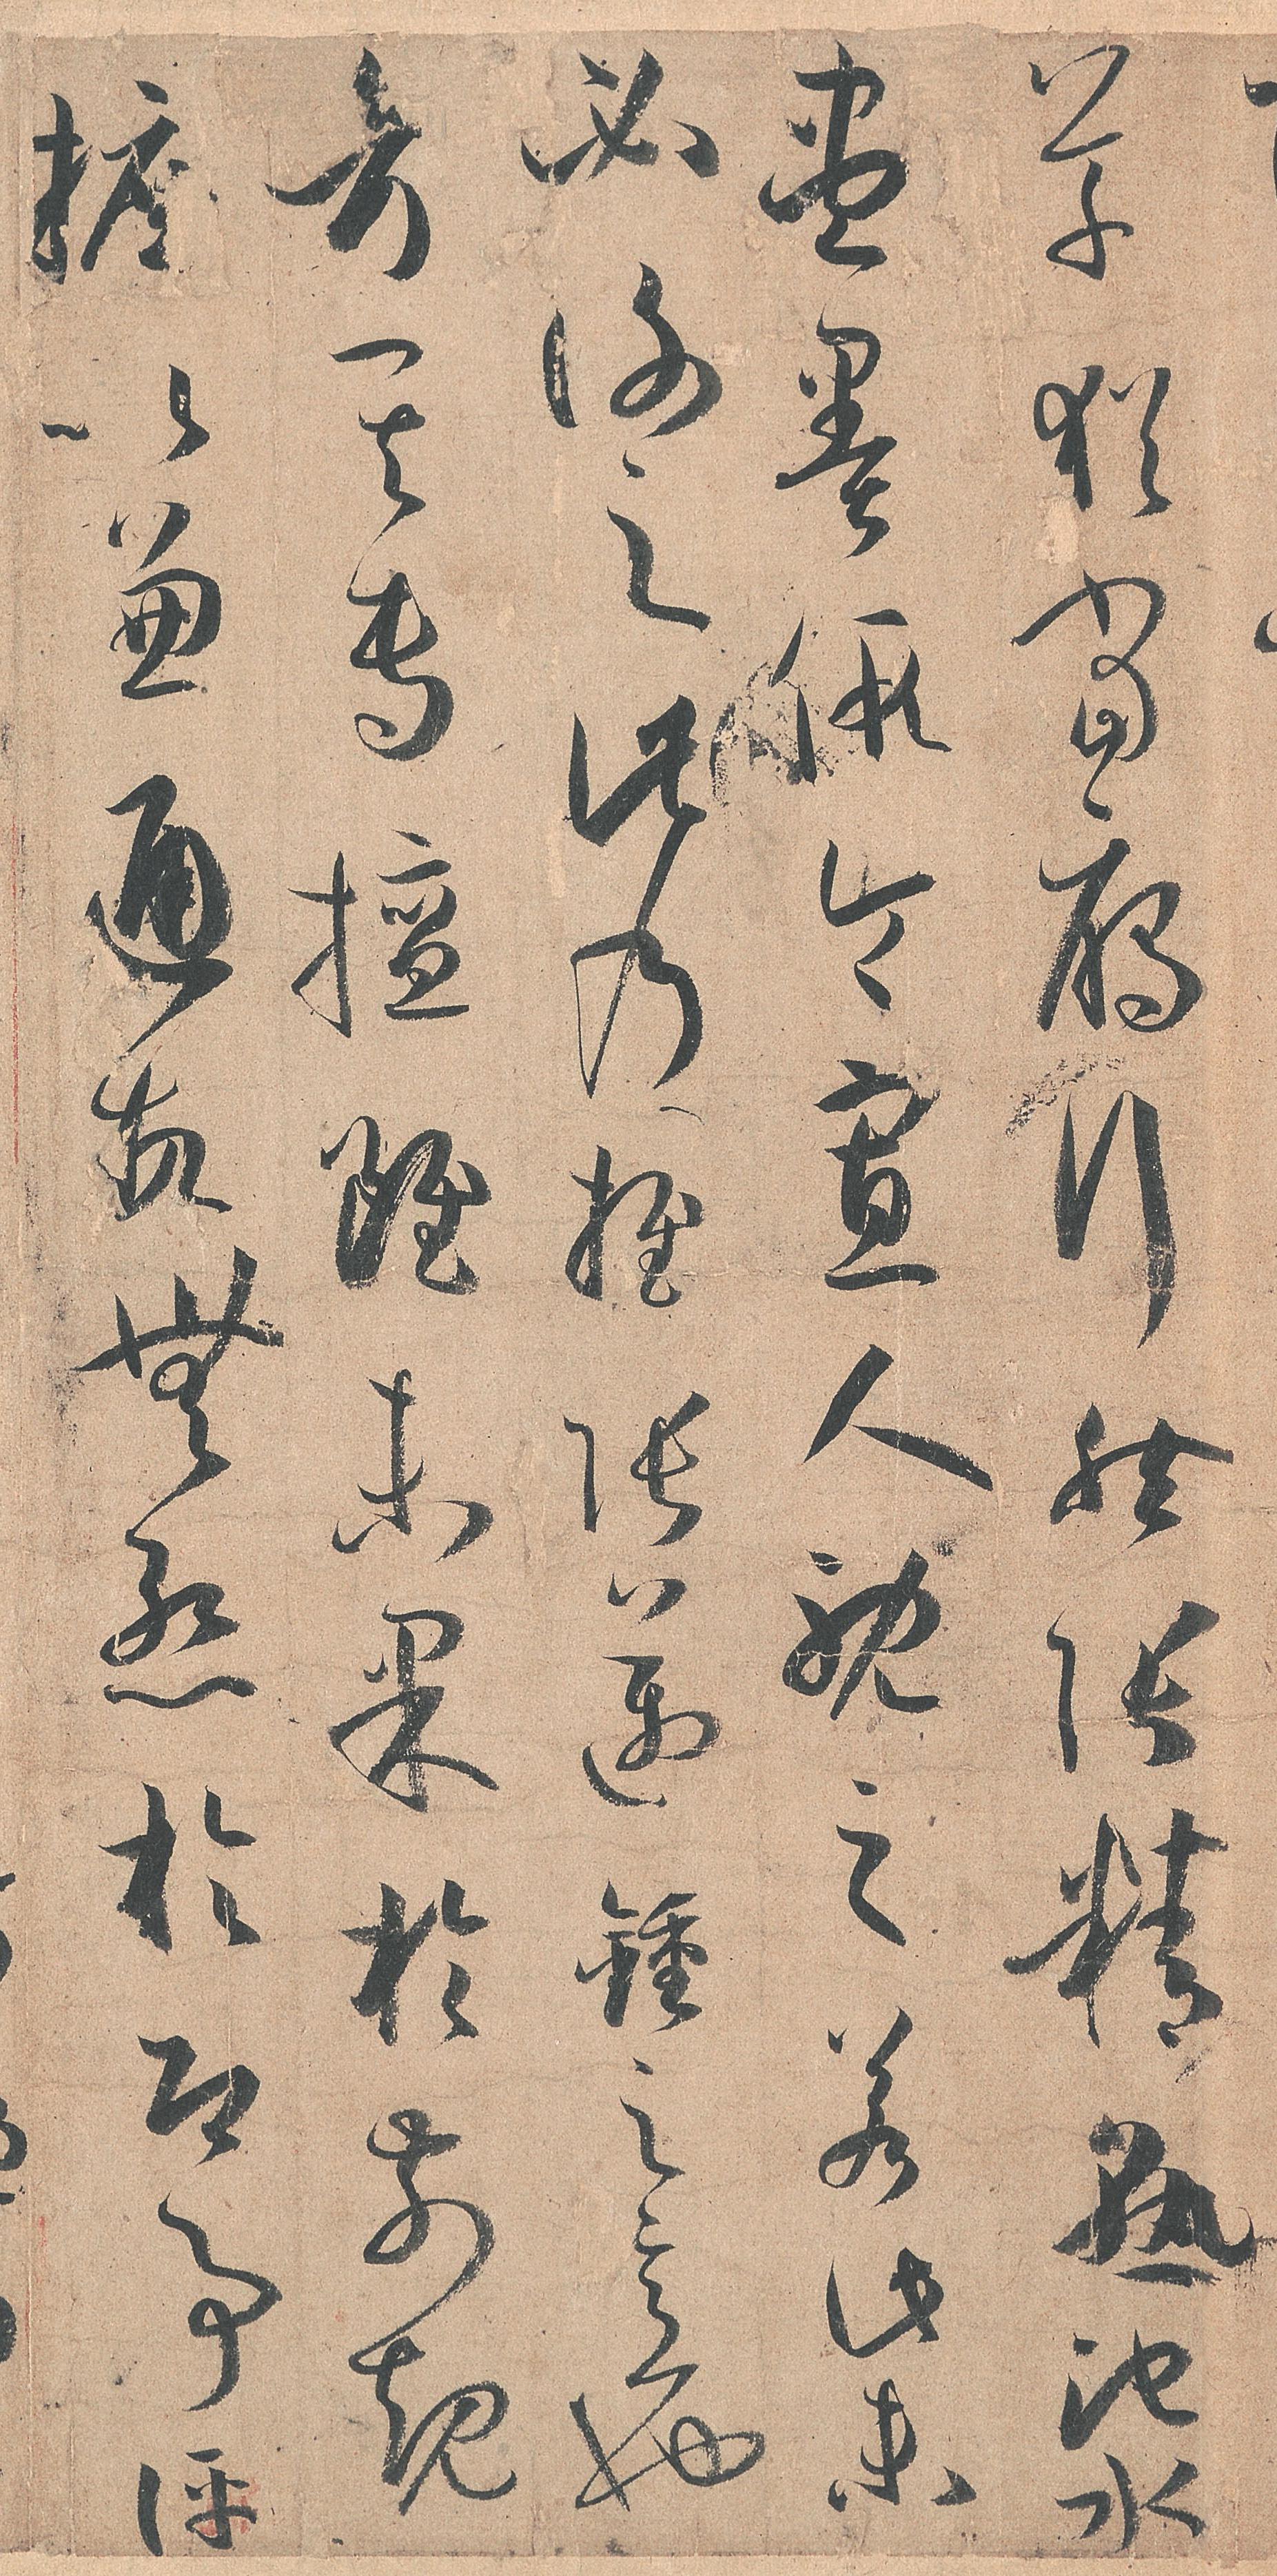 草猶當鴈行然張精熟池水
盡墨假令寡人耽之若此未
必謝之此乃推張邁鍾之意也
考其專擅雖未果於前規
摭以兼通故無慙於即事評